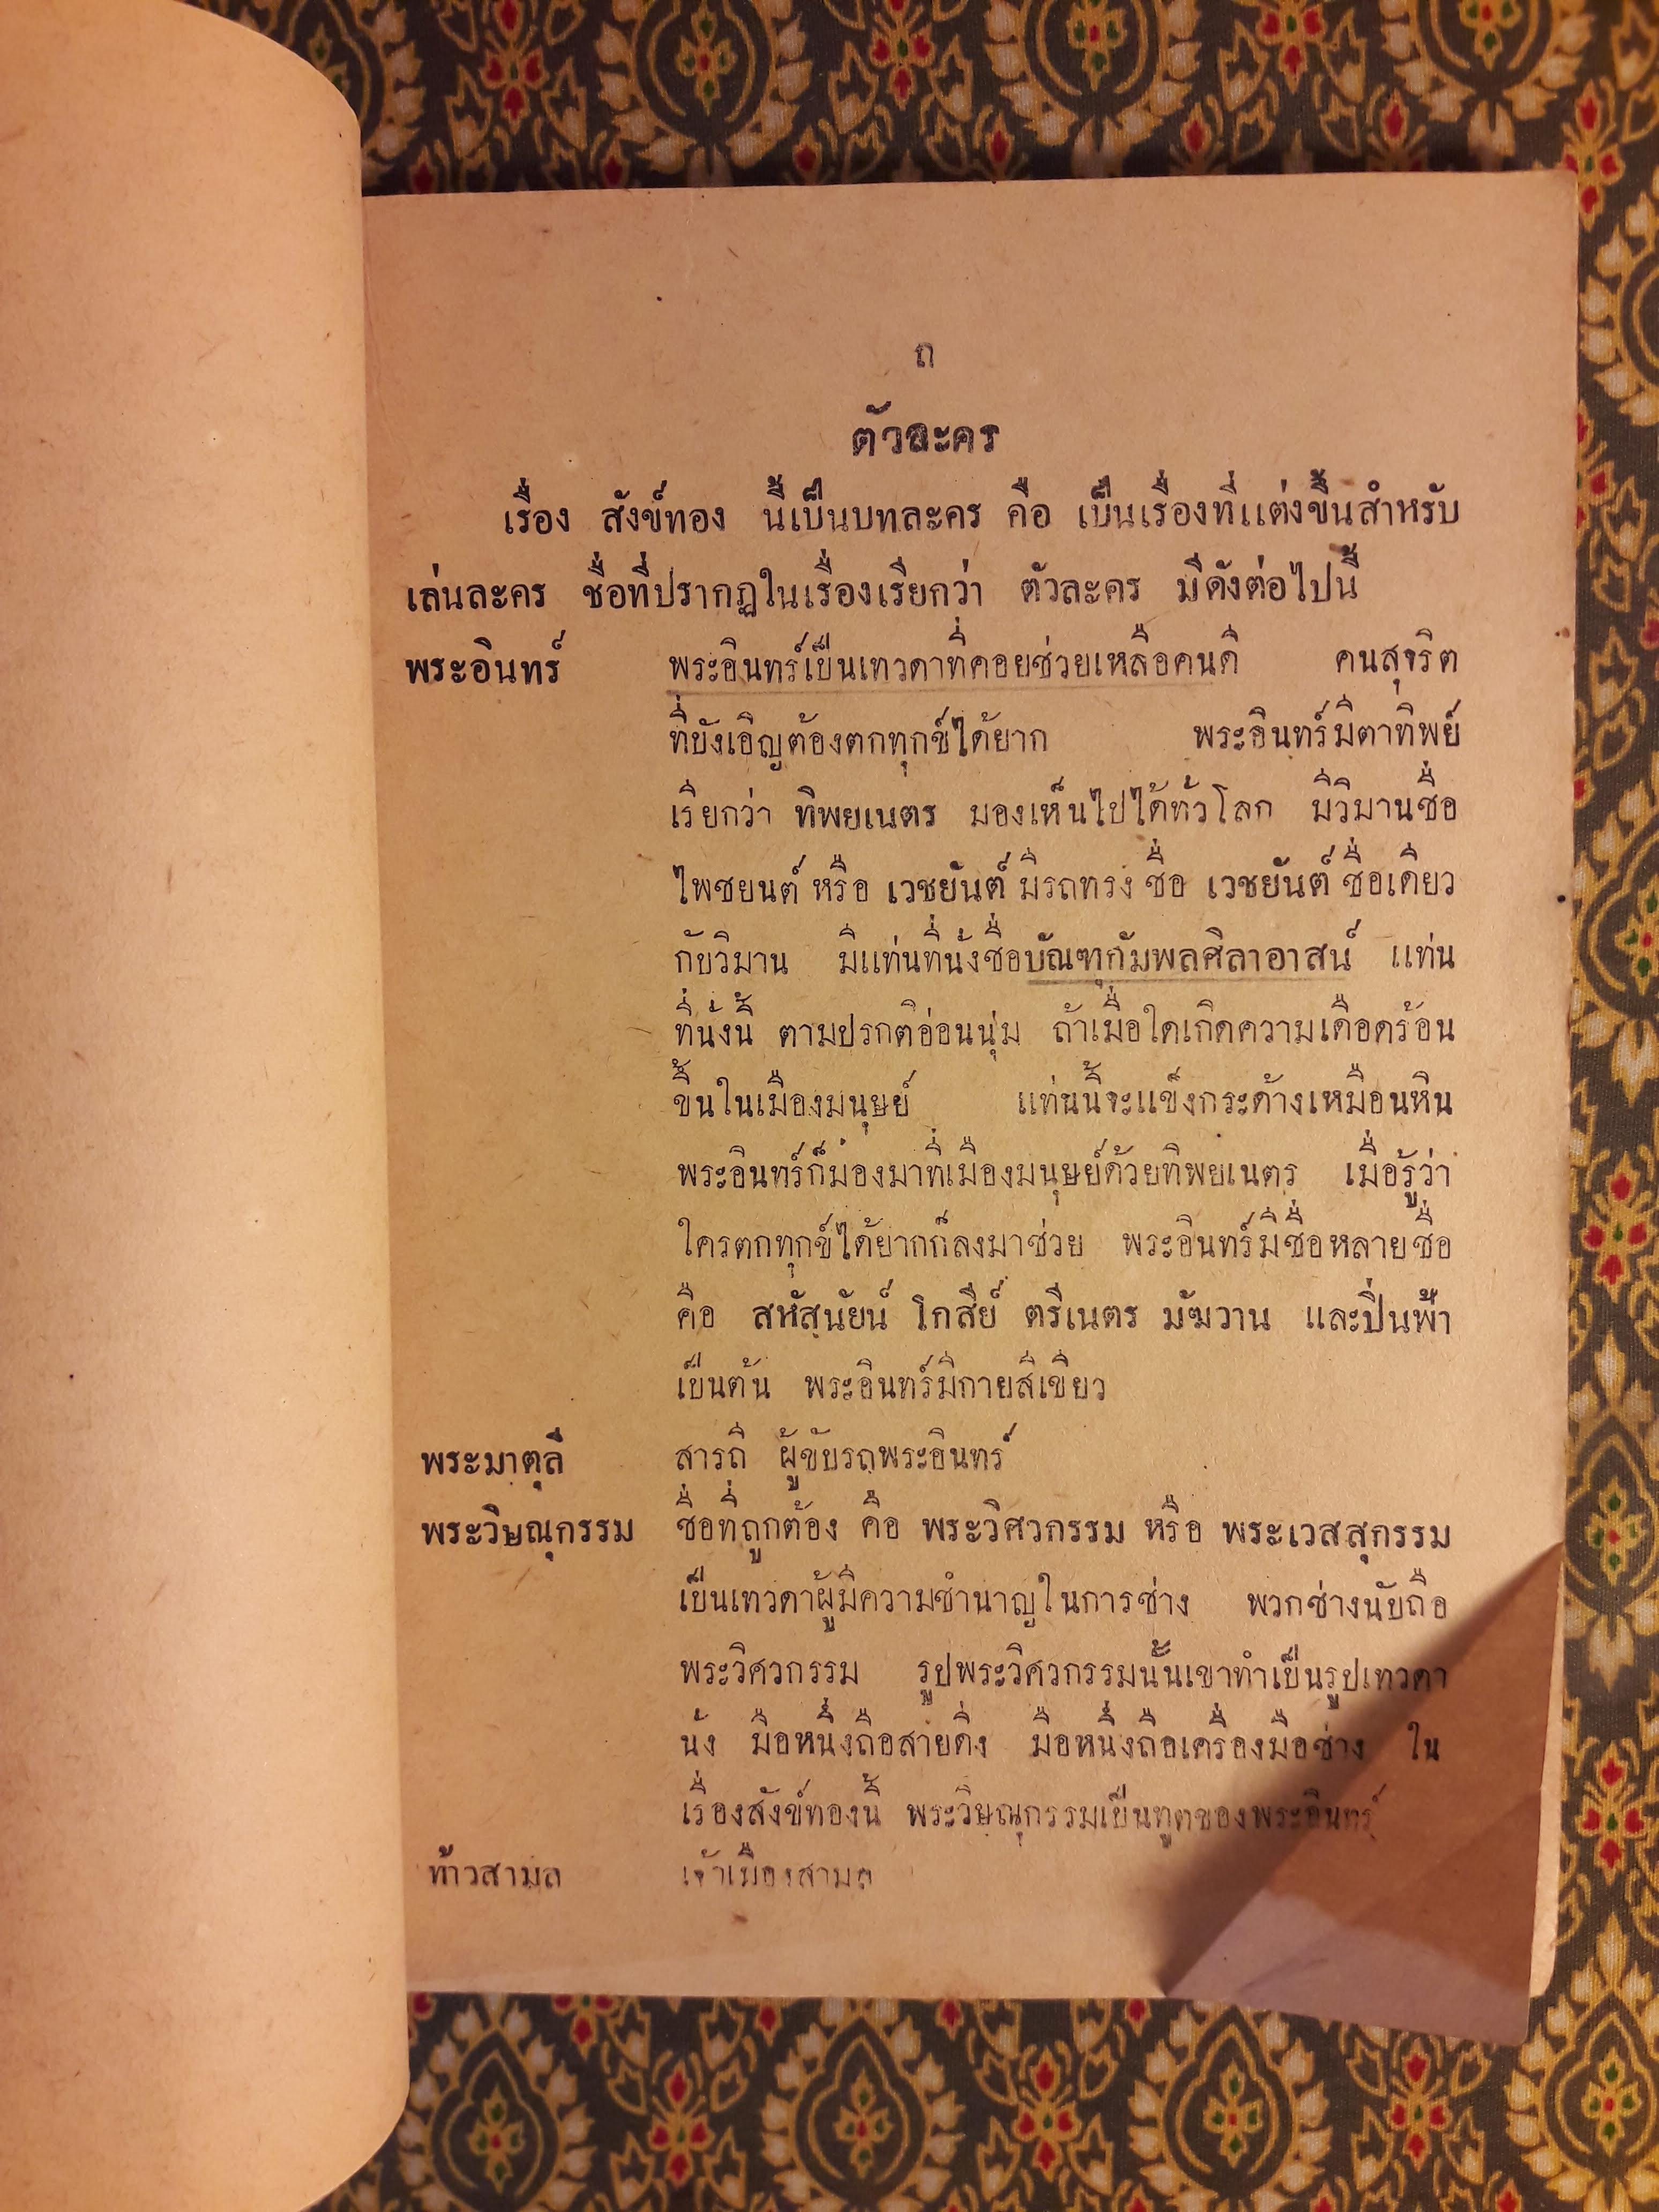 ถ
ตัวละคร
เรื่อง สังข์ทอง นี้เป็นบทละคร คือ เป็นเรื่องที่แต่งขึ้นสำหรับ
เล่นละคร ชื่อที่ปรากฏในเรื่องเรียกว่า ตัวละคร มีดังต่อไปนี้
พระอินทร์ พระอินทร์เป็นเทวดาที่คอยช่วยเหลือคนดี คนสุจริต
ที่บังเอิญต้องตกทุกข์ได้ยาก พระอินทร์มีตาทิพย์
เรียกว่า ทิพยเนตร มองเห็นไปได้ทั่วโลก มีวิมานชื่อ
ไพชยนต์ หรือ เวชยันต์ มีรถทรง ชื่อ เวชยันต์ ชื่อเดียว
กับวิมาน มีแท่นที่นั่งชื่อบัณฑุกัมพลศิลาอาสน์ แท่น
ที่นั่งนี้ ตามปรกติอ่อนนุ่ม ถ้าเมื่อใดเกิดความเดือดร้อน
ขึ้นในเมืองมนุษย์ แท่นนี้จะแข็งกระด้างเหมือนหิน
พระอินทร์ก็มองมาที่เมืองมนุษย์ด้วยทิพยเนตร เมื่อรู้ว่า
ใครตกทุกข์ได้ยากก็ลงมาช่วย พระอินทร์มีชื่อหลายชื่อ
คือ สหัสนัยน์ โกสีย์ ตรีเนตร มัฆวาน และปิ่นฟ้า
เป็นต้น พระอินทร์มีกายสีเขียว
พระมาตุลี สารถี ผู้ขับรถพระอินทร์
พระวิษณุกรรม ชื่อที่ถูกต้อง คือ พระวิศวกรรม หรือ พระเวสสุกรรม
เป็นเทวดาผู้มีความชำนาญในการช่าง พวกช่างนับถือ
พระวิศวกรรม รูปพระวิศวกรรมนั้นเขาทำเป็นรูปเทวดา
นั่ง มือหนึ่งถือสายดิ่ง มือหนึ่งถือเครื่องมือช่าง ใน
เรื่องสังข์ทองนี้ พระวิษณุกรรมเป็นทูตของพระอินทร์
ท้าวสามล เจ้าเมืองสามล